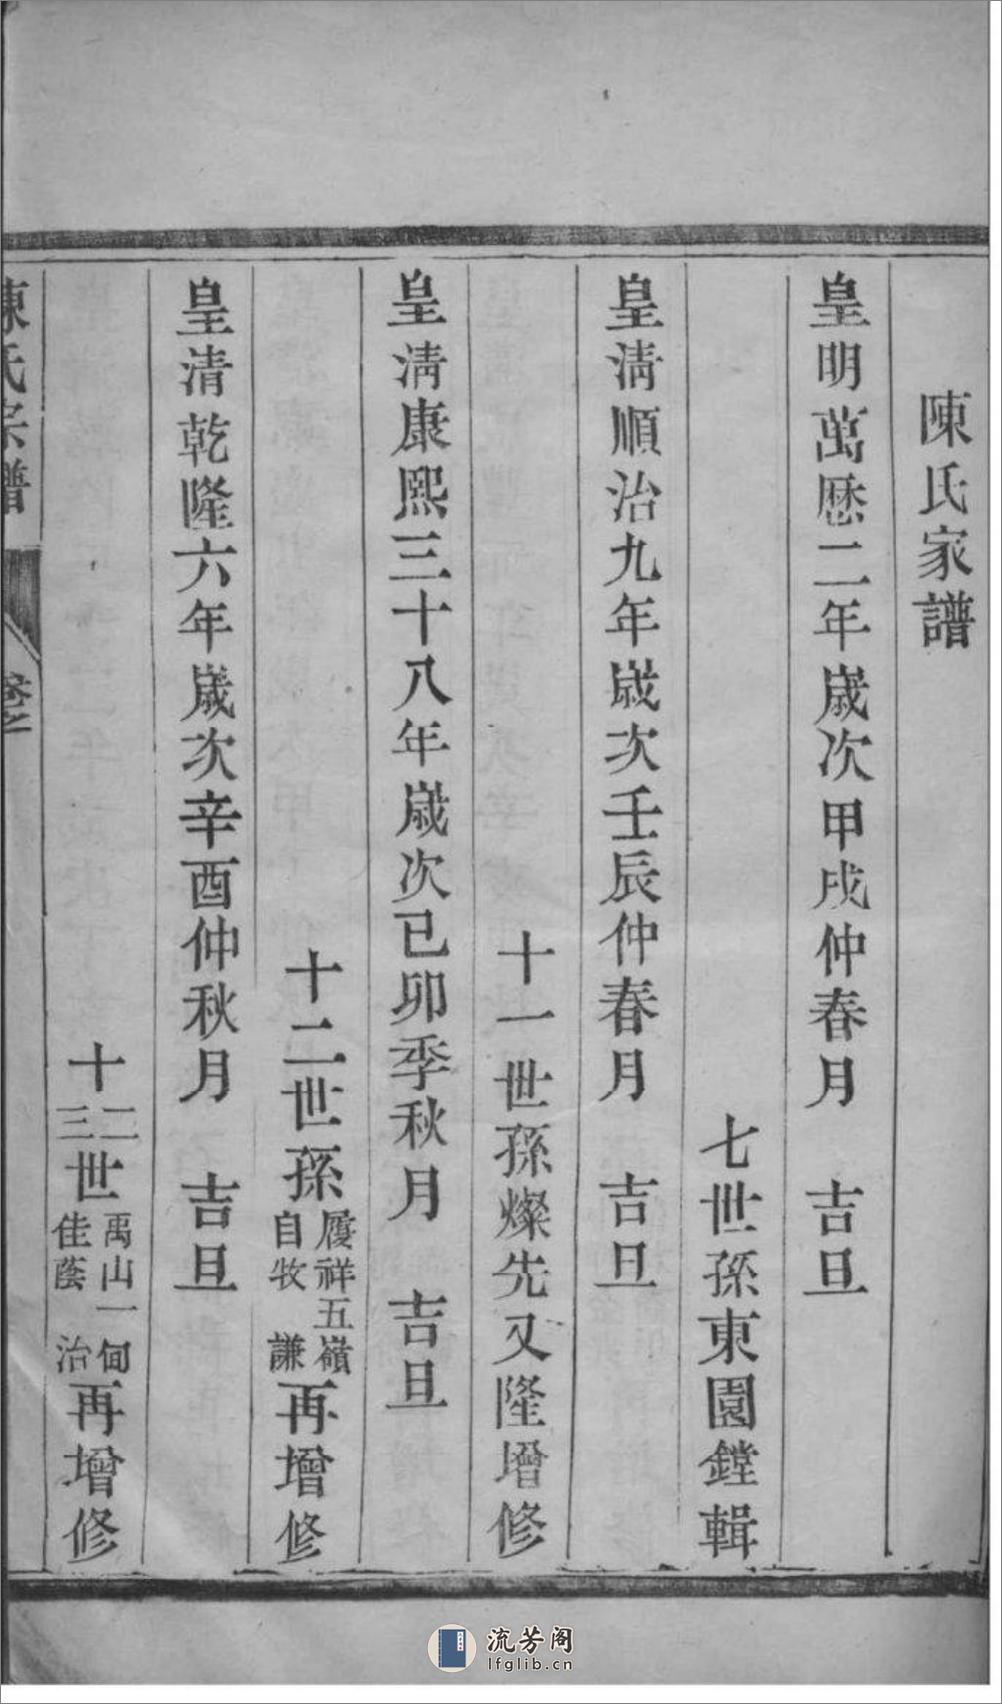 陳氏家譜
皇明萬歷二年歲次甲戌仲春月　吉旦
七世孫東園鏜輯
皇淸順治九年歲次壬辰仲春月　吉旦
十一世孫燦先又隆增修
皇淸康熙三十八年歲次已卯季秋月　吉旦
十二世孫履祥五嶺自牧　謙再增修
皇清乾隆六年歲次辛酉仲秋月　吉旦
十二三世禹山一甸佳蔭　治再增修
陳氏宗譜　卷之
流芳阁
lfglib.cn